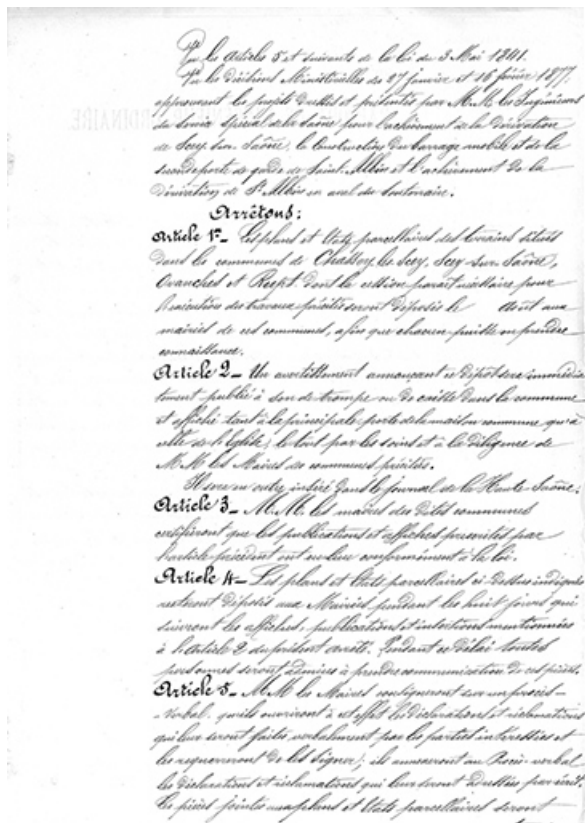 Vu les articles 5 et suivants de la loi du 3 Mai 1841.
Vu les décisions Ministérielles des 27 janvier et 16 février 1877,
approuvant les projets dressés et présentés par M.M. les Ingénieurs
du service spécial de la Saône pour l'achèvement de la dérivation
de Scey-sur-Saône, la Construction du barrage mobile et de la
seconde porte de garde de Saint-Albin et l'achèvement de la
dérivation de St Albin en aval du souterrain.
Arrêtons:
Article 1er_ Les plans et États parcellaires des terrains situés
dans les communes de Chassey-les-Scey, Scey-sur-Saône,
Ovanches et Rupt, dont la cession paraît nécessaire pour
l'exécution des travaux précités seront déposés le Août aux
mairies de ces communes, afin que chacun puisse en prendre
connaissance.
Article 2_ Un avertissement annonçant ce dépôt sera immédia-
tement publié à son de trompe ou de caisse dans la commune
et affiché tant à la principale porte de la maison commune qu'à
celle de l'église, le tout par les soins et à la diligence de
M.M. les Maires des communes précitées.
Il sera en outre inséré dans le journal de la Haute-Saône.
Article 3_ M.M. les maires des dites communes
certifieront que les publications et affiches prescrites par
l'article précédent ont eu lieu conformément à la loi.
Article 4_ Les plans et États parcellaires ci-dessus indiqués
resteront déposés aux Mairies pendant les huit jours qui
suivront les affiches, publications et insertions mentionnées
à l'article 2 du présent arrêté. Pendant ce délai toutes
personnes seront admises à prendre communication de ces pièces.
Article 5_ M.M. les Maires consigneront sur un procès-
-verbal, qu'ils ouvriront à cet effet les déclarations et réclamations
qui leur seront faites verbalement par les parties intéressées et
les requerront de les signer; ils annexeront au Procès-verbal
les déclarations et réclamations qui leur seront adressées par écrit.
Les pièces jointes aux plans et États parcellaires seront